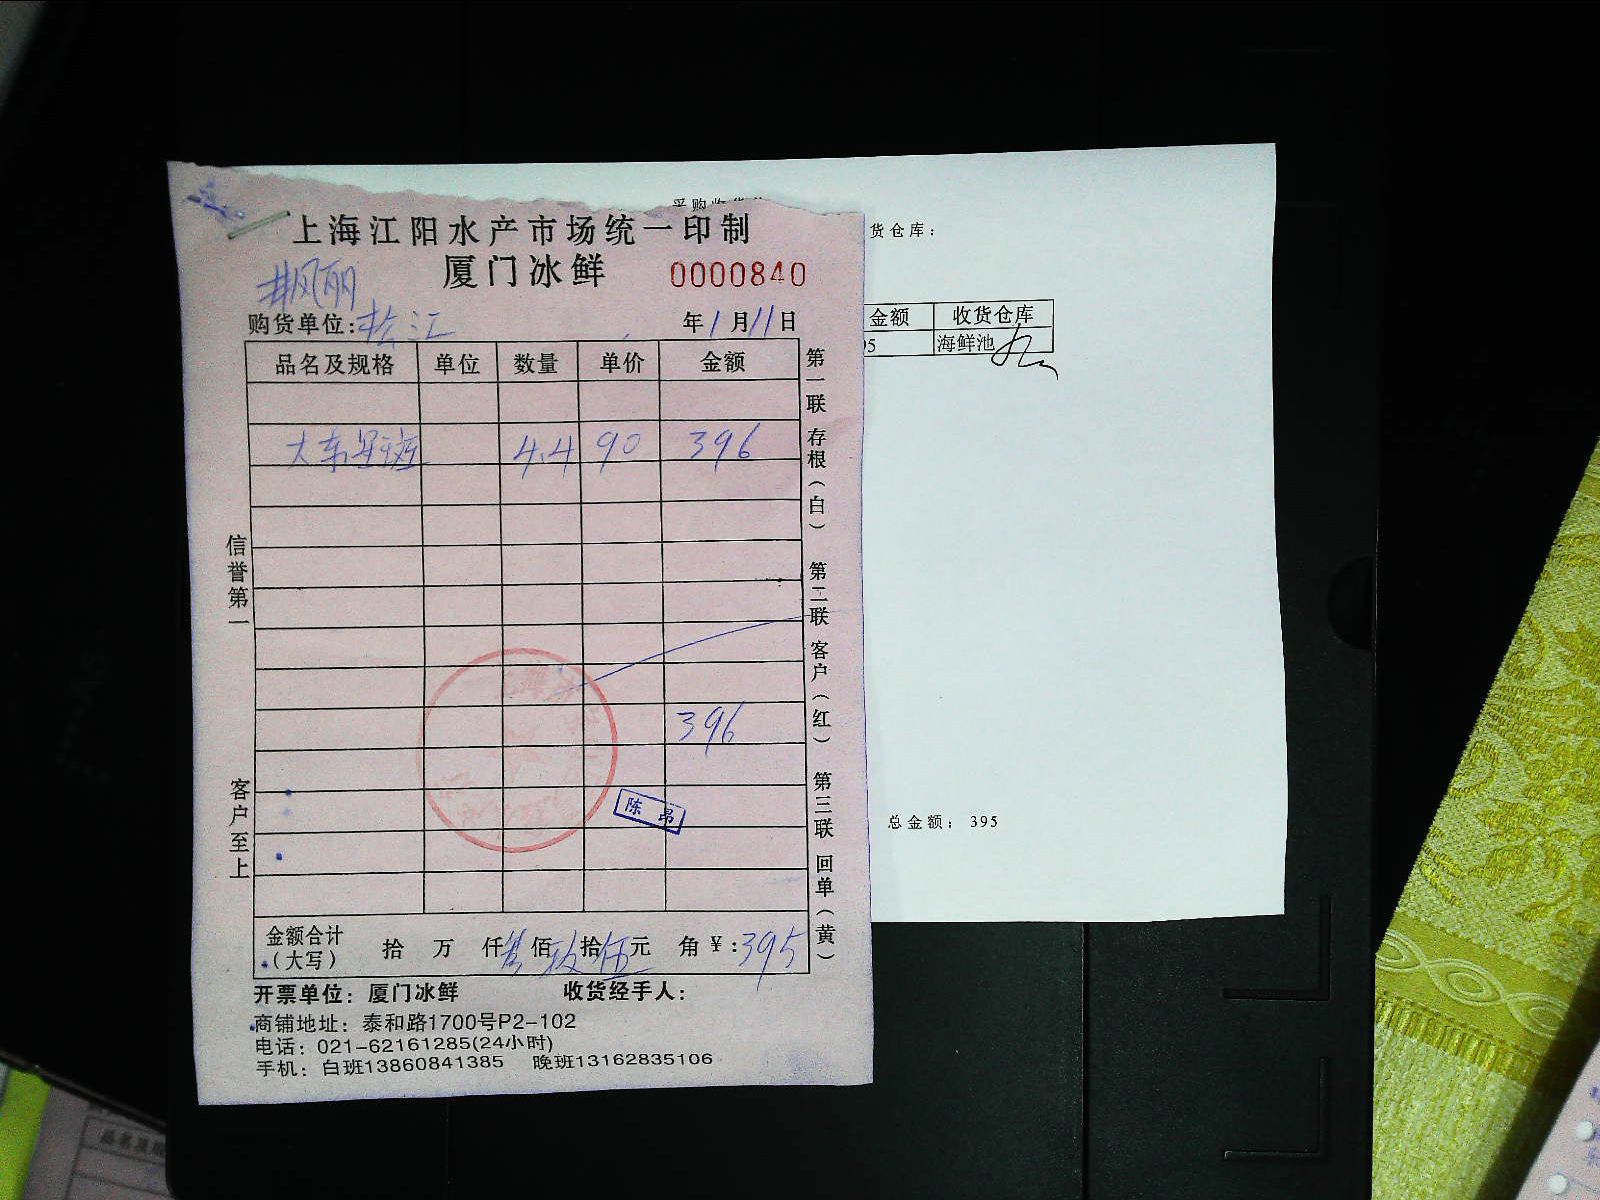 采购收货
上海江阳水产市场统一印制
货仓库:
厦门冰鲜 0000840
购货单位:松江 年1月11日
金额 收货仓库
95 海鲜池
品名及规格 单位 数量 单价 金额
大东星斑 4.4 90 396
396
陈昂
总金额: 395
金额合计(大写) 拾 万 仟叁佰玖拾伍元 角¥:395
第一联 存根(白) 第二联 客户(红) 第三联 回单(黄)
信誉第一
客户至上
开票单位: 厦门冰鲜 收货经手人:
商铺地址: 泰和路1700号P2-102
电话: 021-62161285(24小时)
手机: 白班13860841385 晚班13162835106